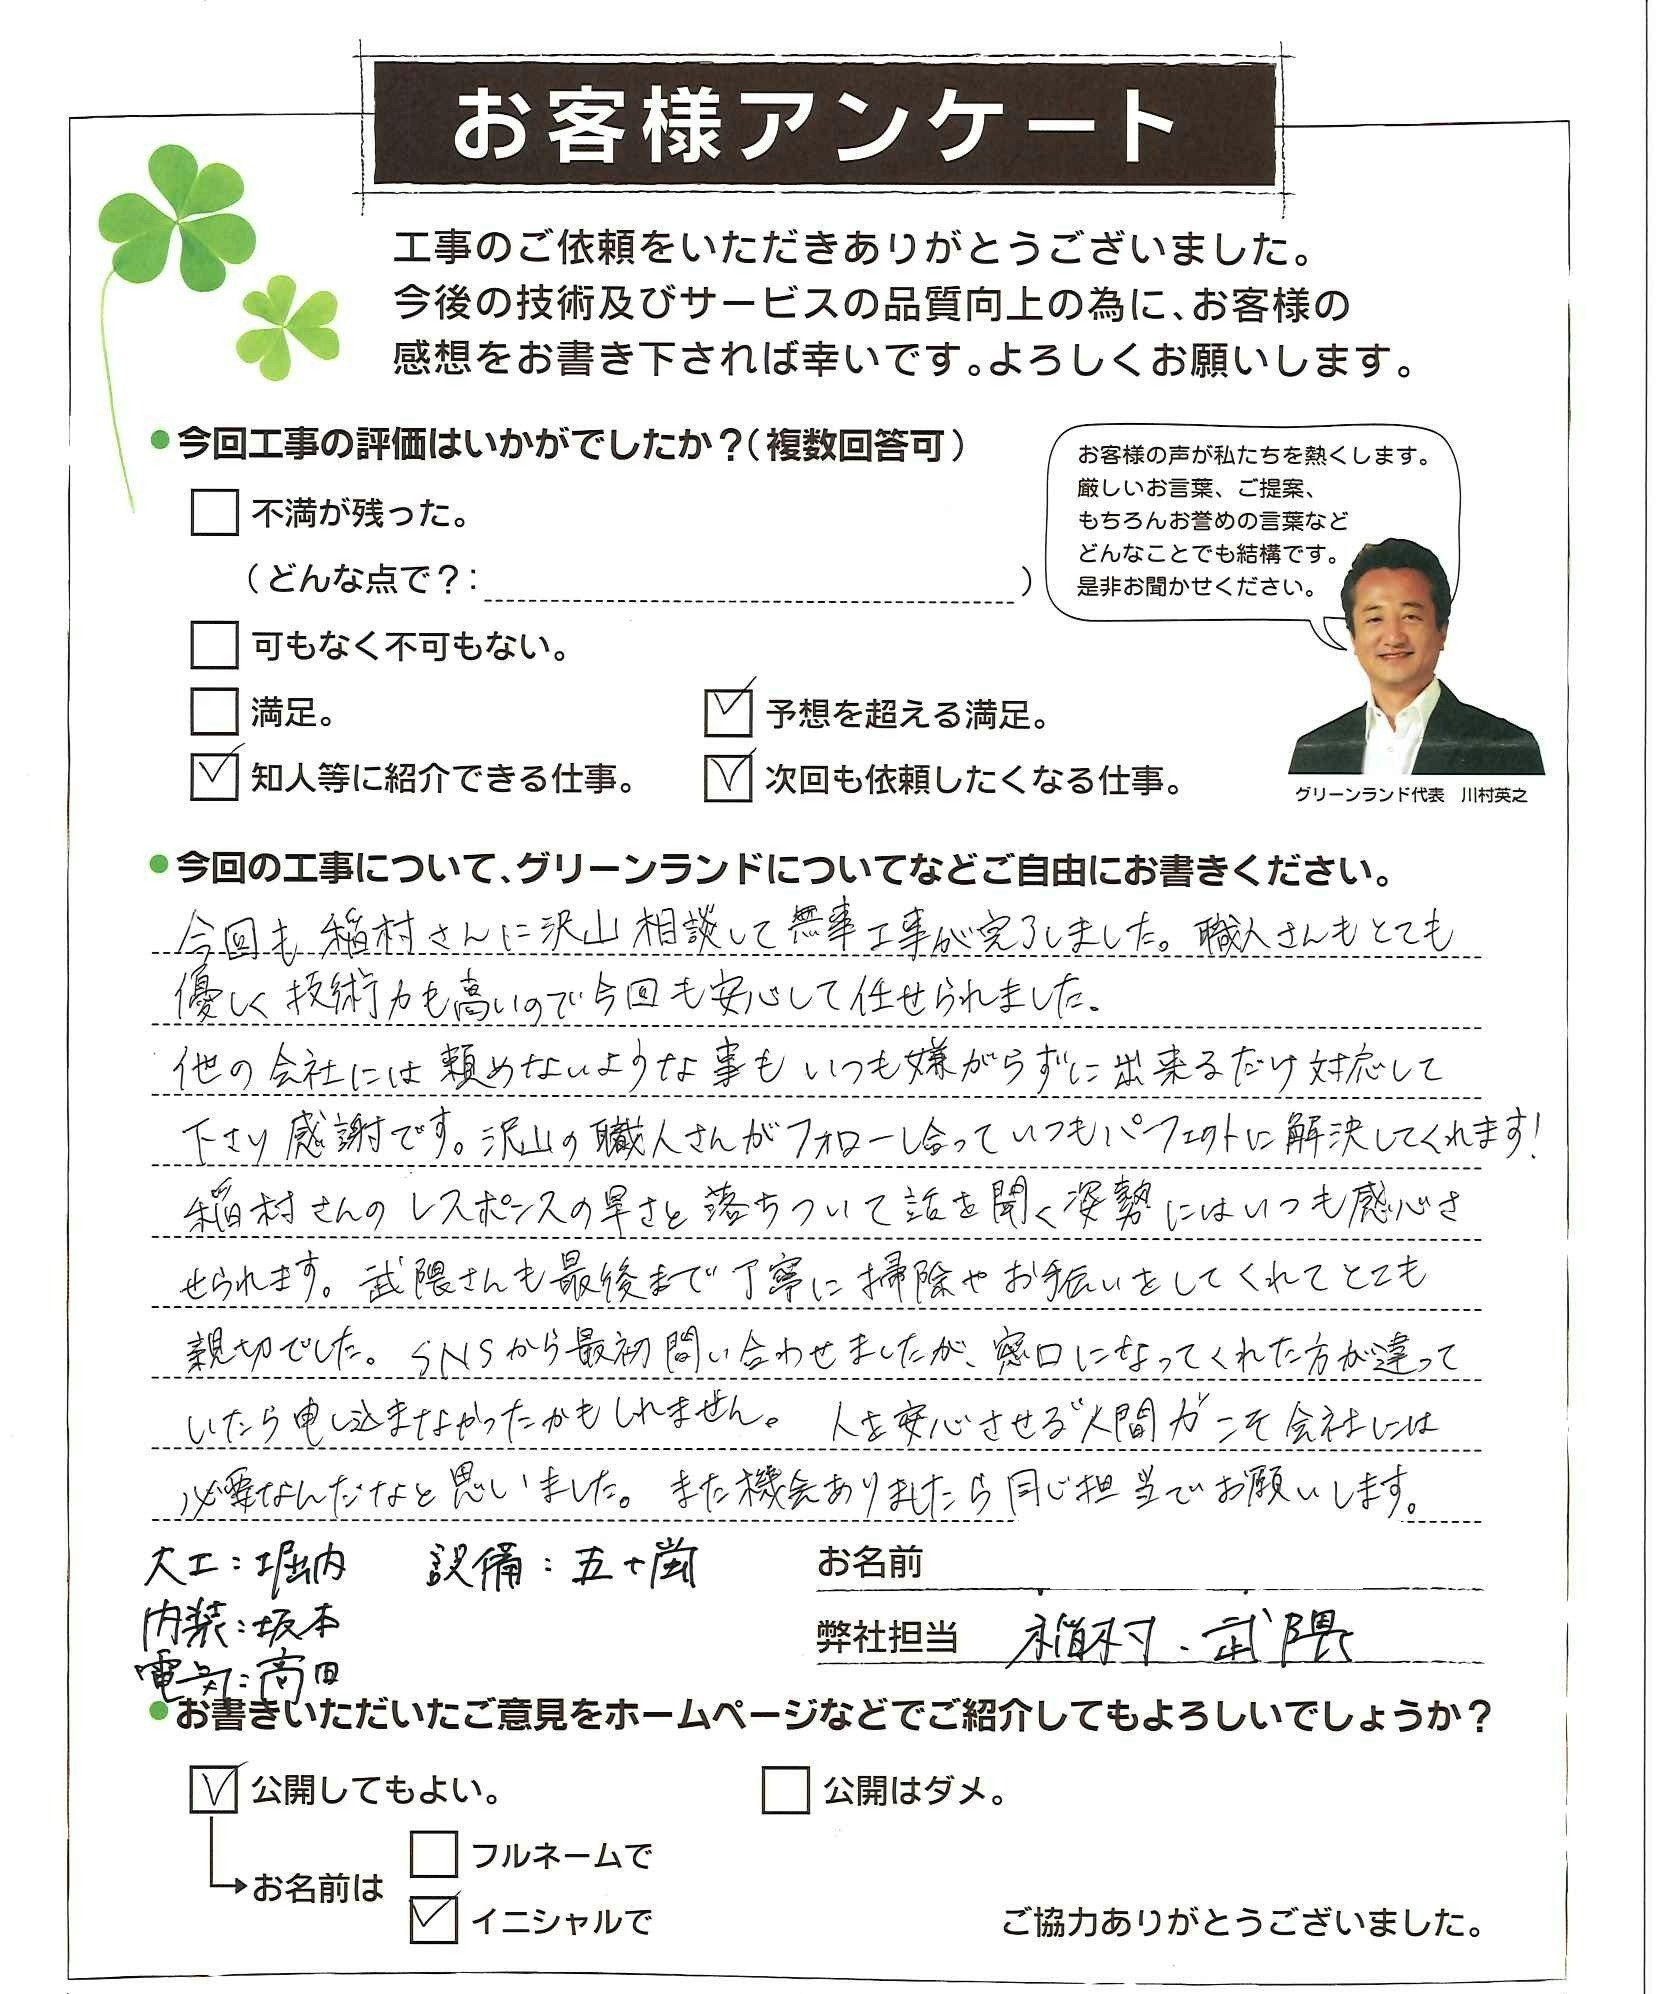 お客様アンケート
工事のご依頼をいただきありがとうございました。
今後の技術及びサービスの品質向上の為に、お客様の
感想をお書き下されば幸いです。よろしくお願いします。
●今回工事の評価はいかがでしたか?(複数回答可)
不満が残った。
(どんな点で?: )
可もなく不可もない。
満足。
予想を超える満足。
知人等に紹介できる仕事。
次回も依頼したくなる仕事。
お客様の声が私たちを熱くします。
厳しいお言葉、ご提案、
もちろんお誉めの言葉など
どんなことでも結構です。
是非お聞かせください。
グリーンランド代表 川村英之
●今回の工事について、グリーンランドについてなどご自由にお書きください。
今回も稲村さんに沢山相談して無事工事が完了しました。職人さんもとても
優しく技術力も高いので今回も安心して任せられました。
他の会社には頼めないような事もいつも嫌がらずに出来るだけ対応して
下さり感謝です。沢山の職人さんがフォローし合っていつもパーフェクトに解決してくれます!
稲村さんのレスポンスの早さと落ちついて話を聞く姿勢にはいつも感心さ
せられます。武隈さんも最後まで丁寧に掃除やお手伝いをしてくれてとても
親切でした。SNSから最初問い合わせましたが、窓口になってくれた方が違って
いたら申し込まなかったかもしれません。人を安心させる"人間力"こそ会社には
必要なんだなと思いました。また機会ありましたら同じ担当でお願いします。
大工:堀内 設備:五十嵐
内装:坂本
電気:高田
お名前
弊社担当 稲村・武隈
●お書きいただいたご意見をホームページなどでご紹介してもよろしいでしょうか?
公開してもよい。
公開はダメ。
お名前は
フルネームで
イニシャルで
ご協力ありがとうございました。